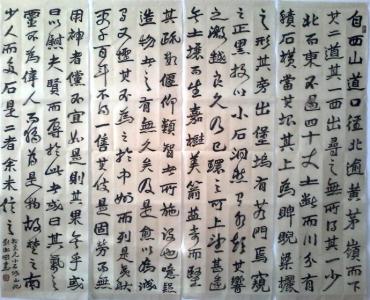 自西山道口徑北逾黃茅嶺而下
有二道其一西出尋之無所得其一少
北而東不過四十丈土斷而川分有
積石橫當其垠其上為睥睨梁欐
之形其旁出堡塢有若門焉窺
之正黑投以小石洞然有水聲其響
之激越良久乃已環之可上望甚遠
無土壤而生嘉樹美箭益奇而堅
其疏數偃仰類智者所施設也噫吾疑
造物者之有無久矣及是愈以為誠
有又怪其不為之於中州而列是夷狄
更千百年不得一售其伎是固勞而無
用神者儻不宜如是則其果無乎或
曰以慰夫賢而辱於此者或曰其氣之
靈不為偉人而獨為是物故楚之南
少人而多石是二者余未信之